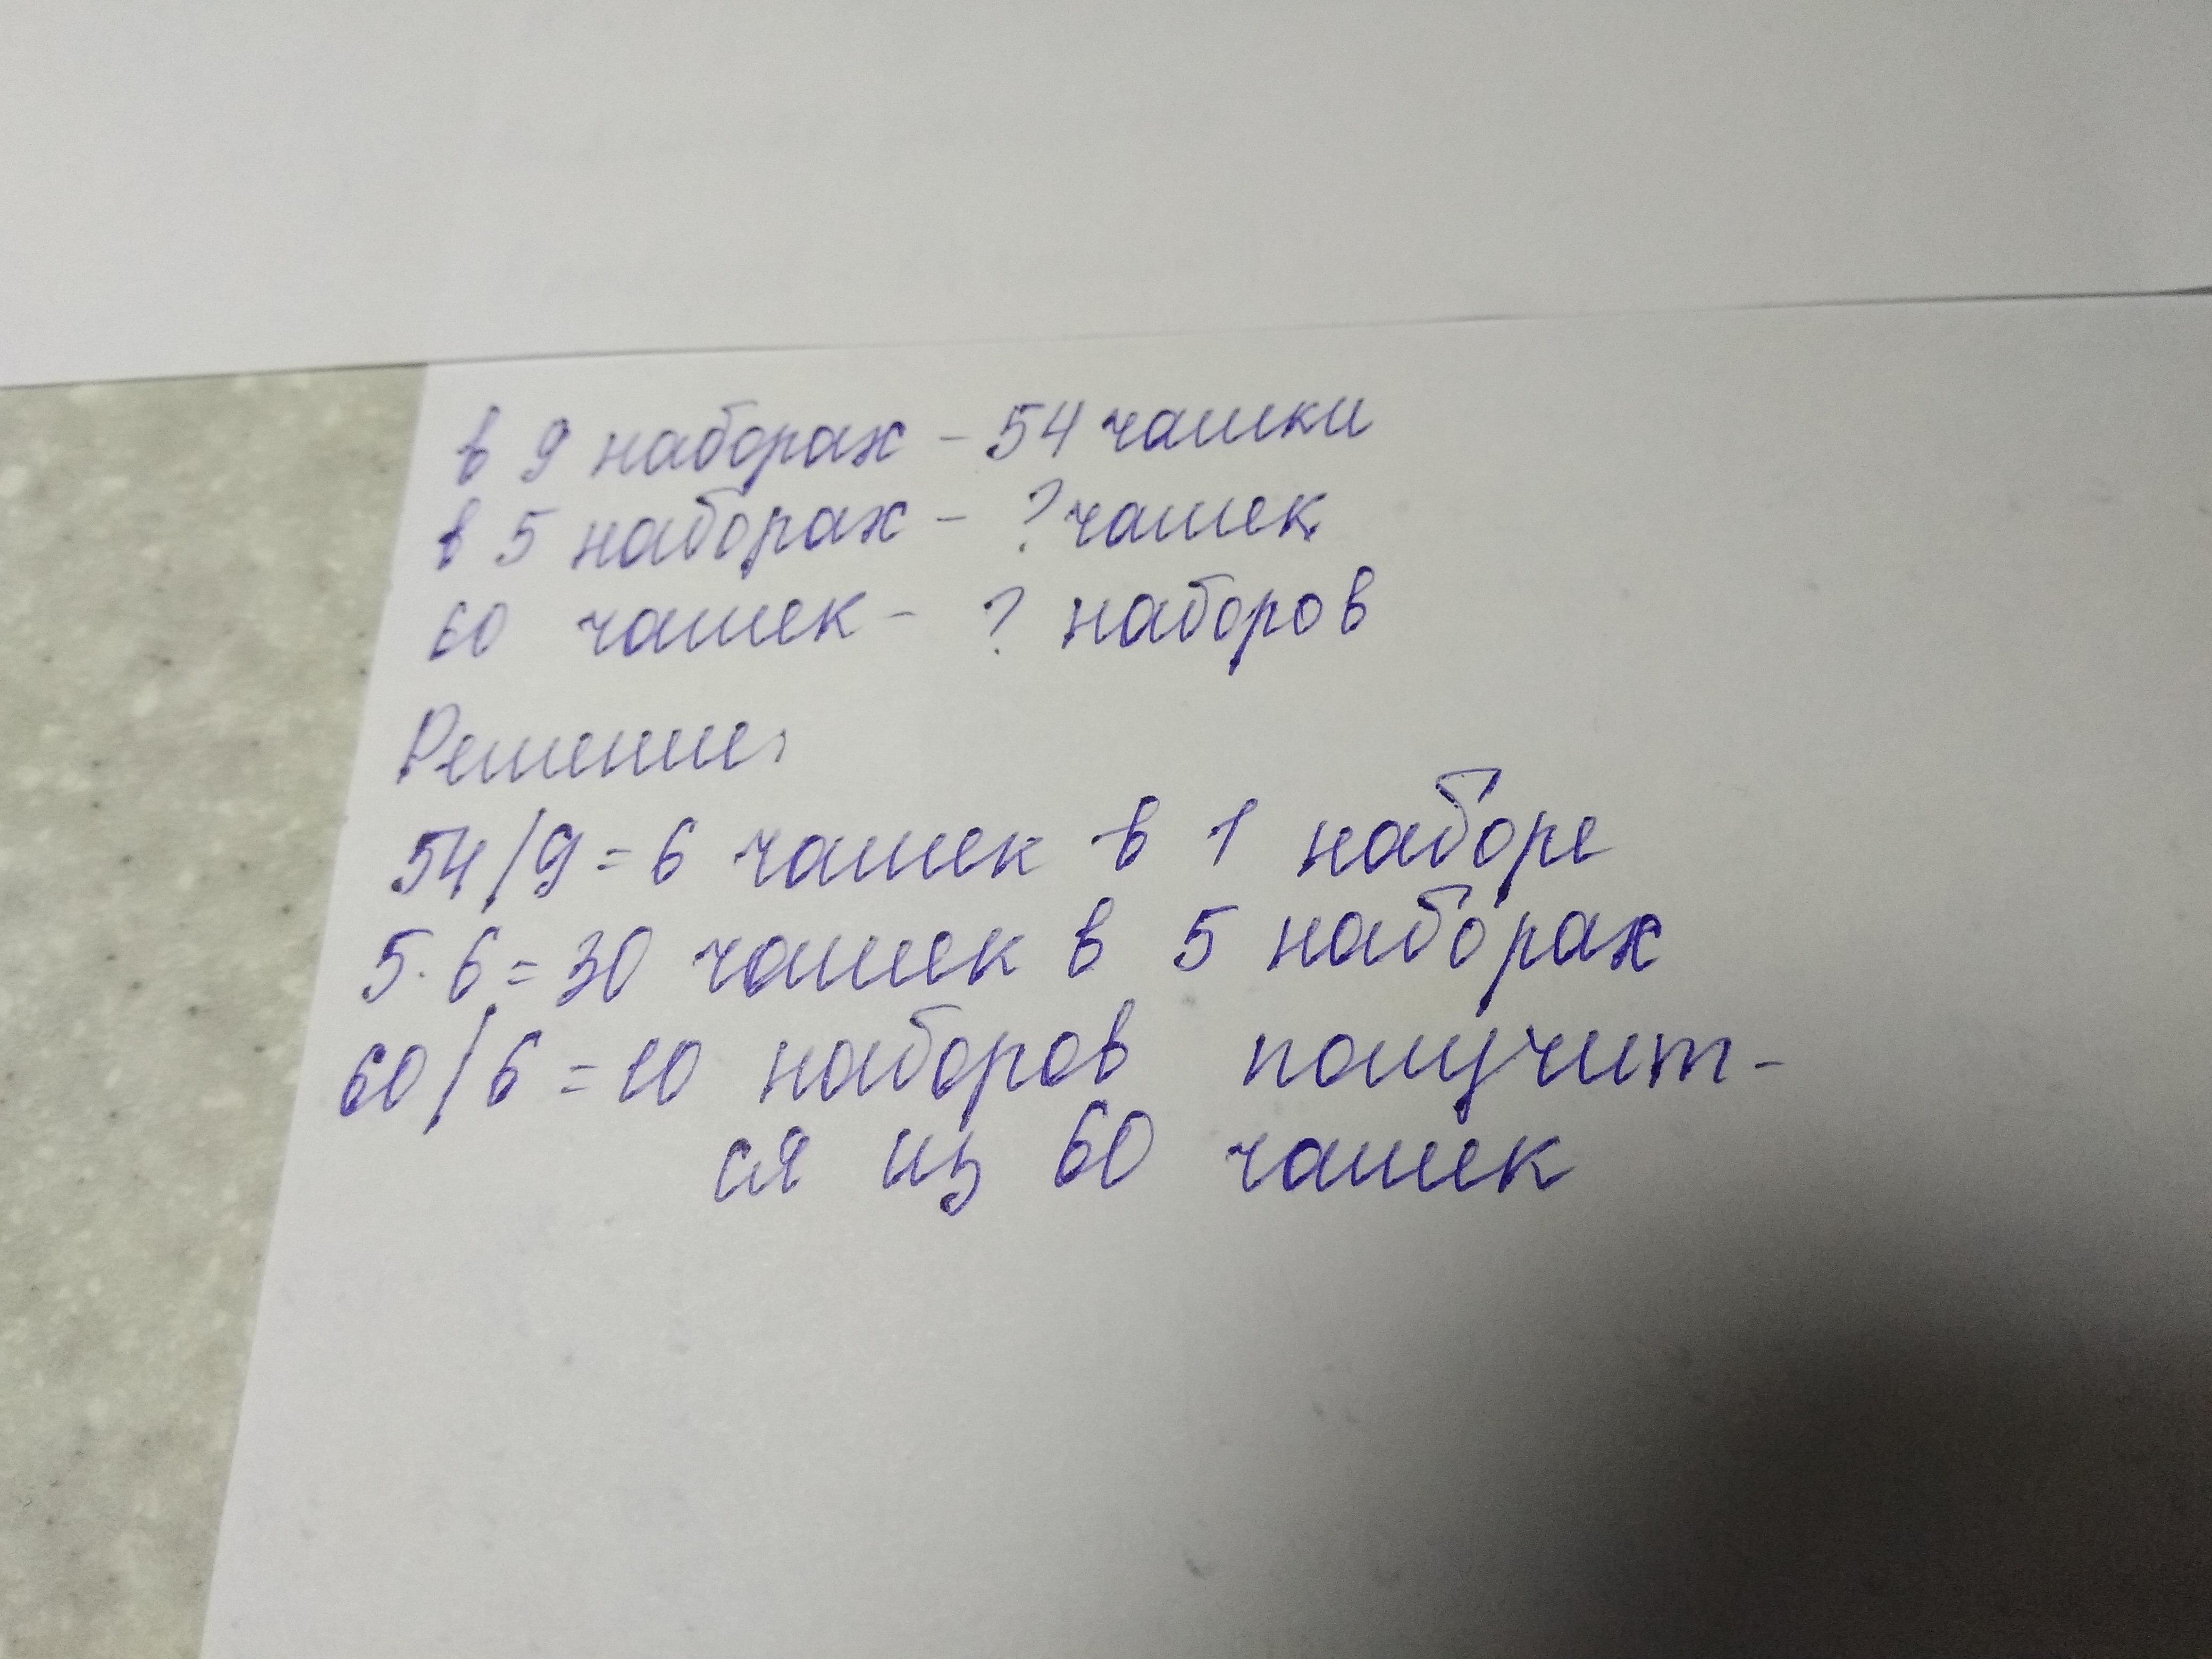 в 9 наборах - 54 чашки
в 5 наборах - ? чашек
60 чашек - ? наборов
Решение:
54/9=6 чашек в 1 наборе
5·6=30 чашек в 5 наборах
60/6=10 наборов получит-
ся из 60 чашек